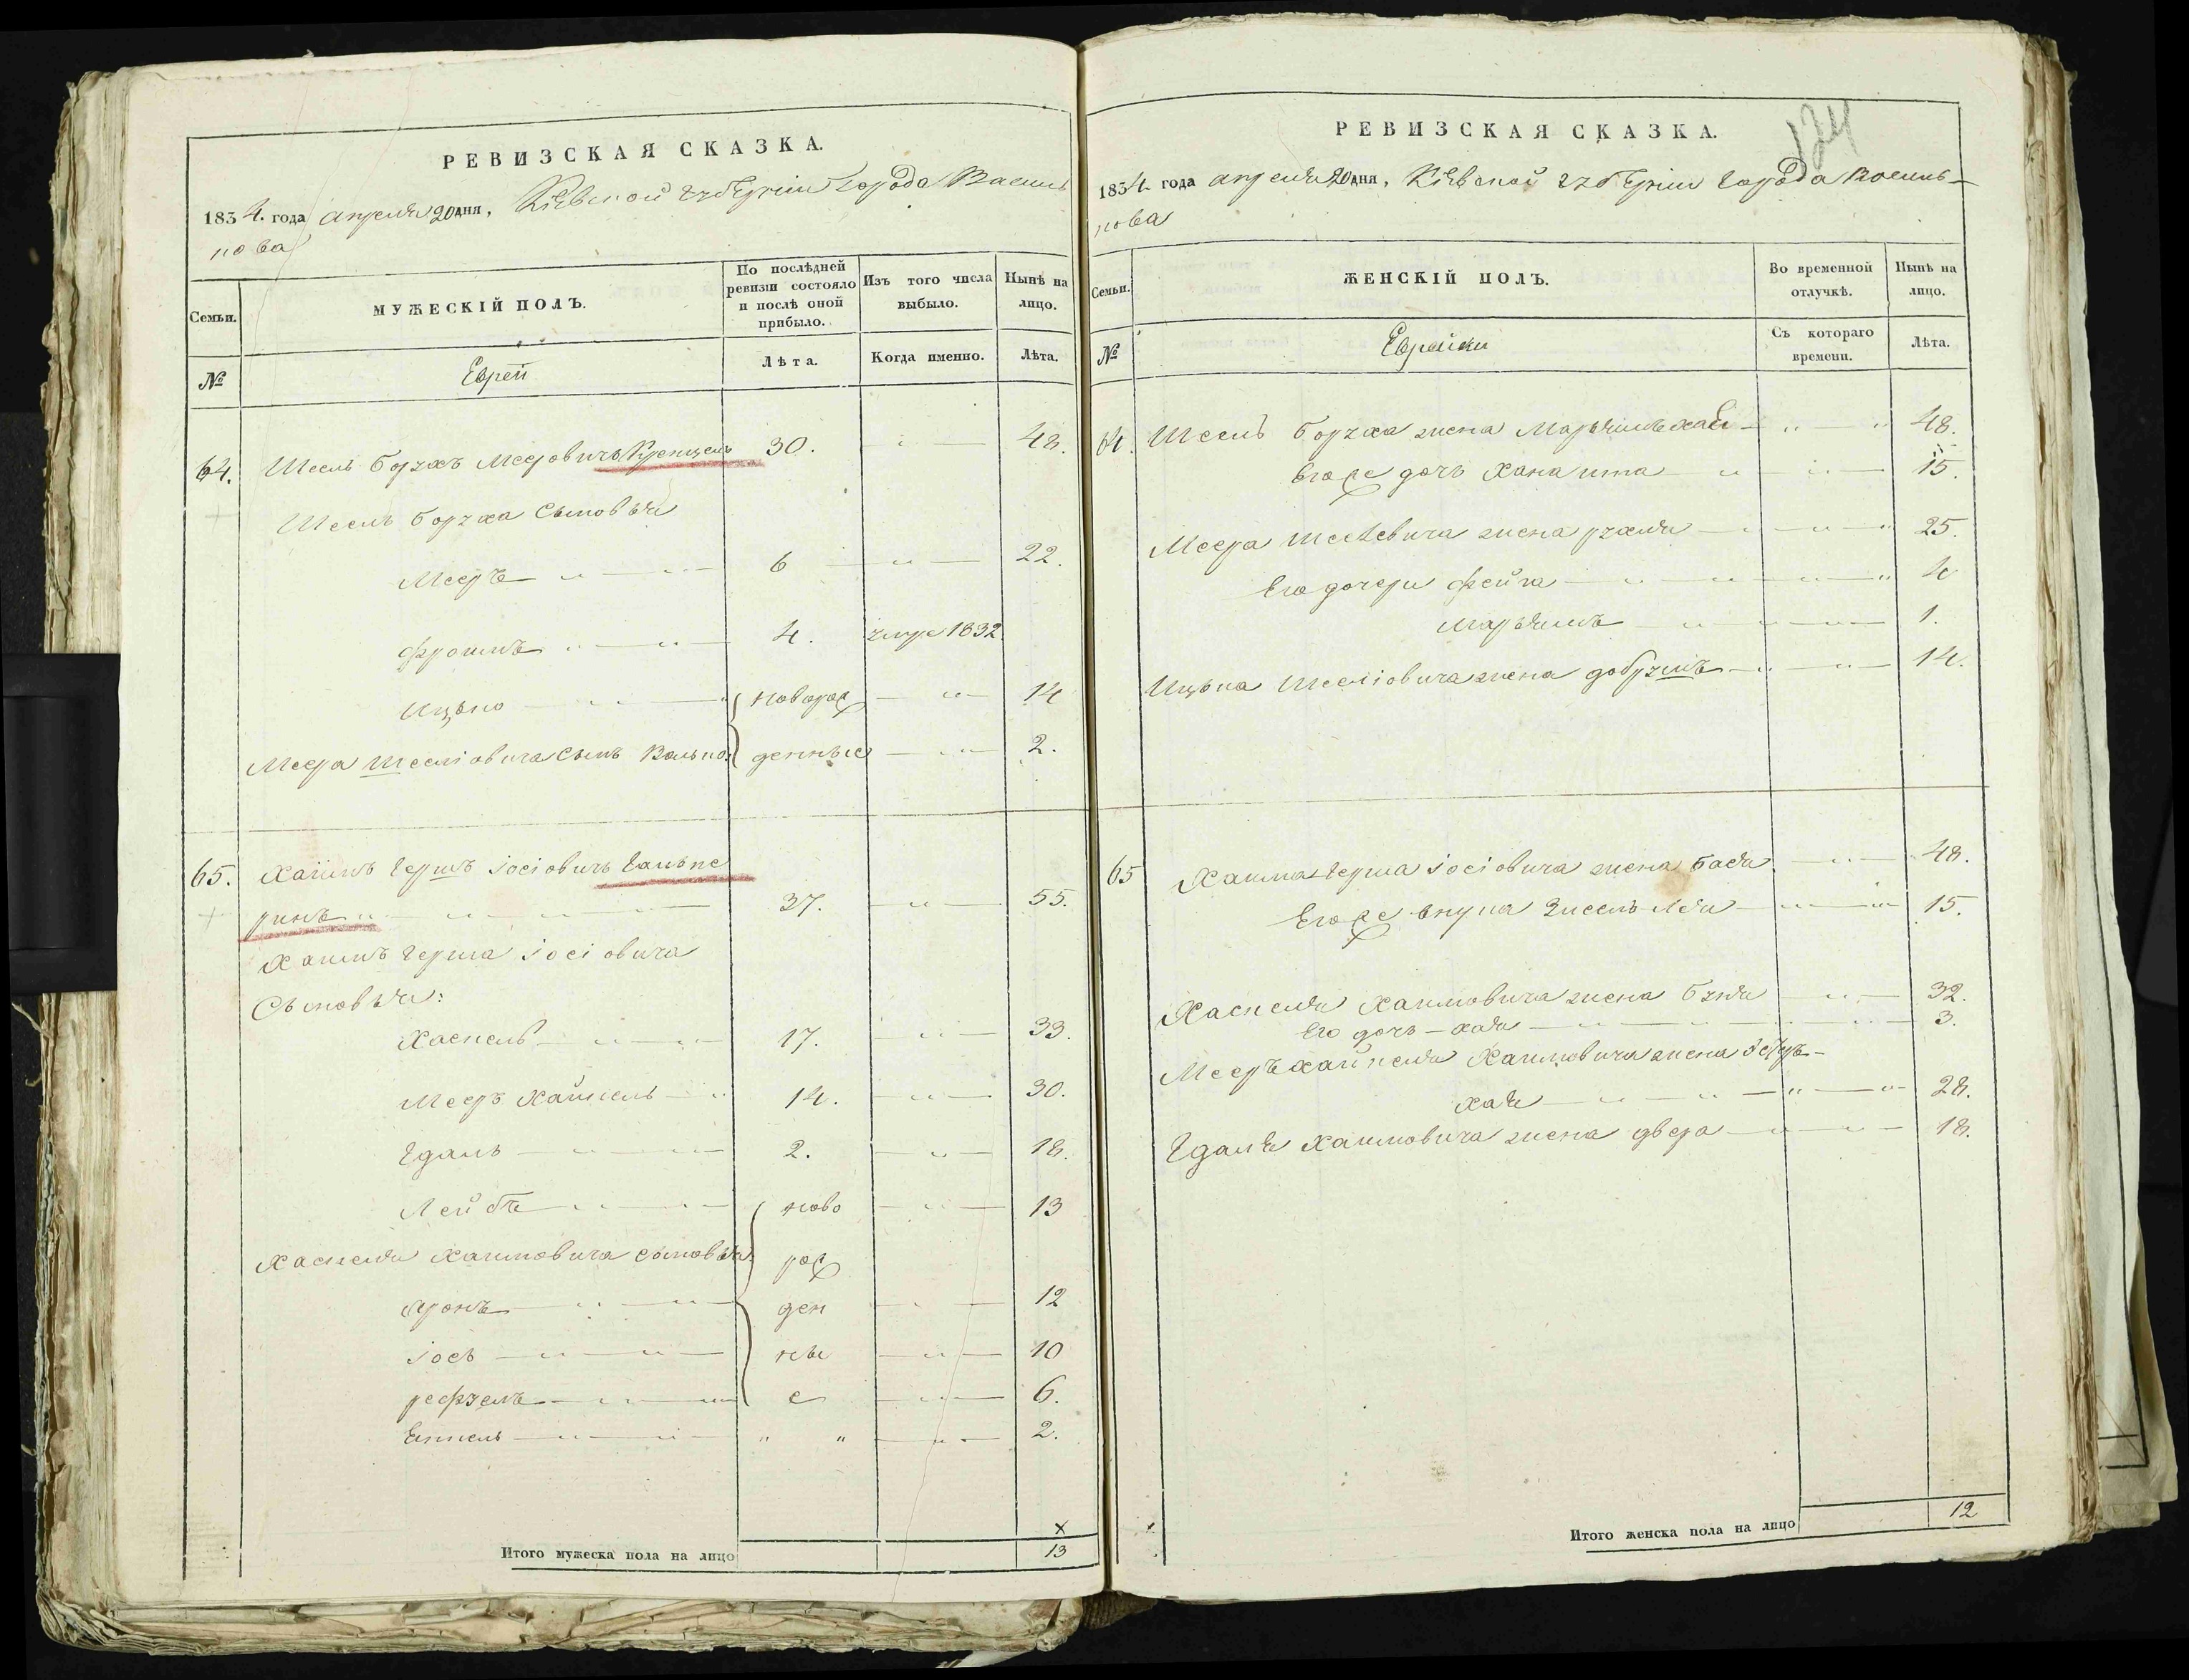 РЕВИЗСКАЯ СКАЗКА.
1834. года апреля 20 дня, Кіевской губерніи города Василь
кова
Семьи.
МУЖЕСКІЙ ПОЛЪ.
По послѣдней ревизіи состояло и послѣ оной прибыло.
Изъ того числа выбыло.
Нынѣ на лицо.
№
Еврей
Лѣта.
Когда именно.
Лѣта.
64. Шселъ Борухъ Мееровичъ 30. 48.
Шселъ Боруха Сыновья
Мееръ 6 22.
Фроимъ 4. умре 1832.
Ицько новорож 14
Меера Шселіовича сынъ Волько денные 2.
65. Хаимъ Гершъ Іосіовичъ Гальпе
ринъ 37. 55.
Хаимъ Герша Іосіовича
Сыновья:
Хаскель 17. 33.
Мееръ Хайкель 14. 30.
Гдаль 2. 18.
Лейба ново 13
Хаскеля Хаимовича сыновья рож
Аронъ ден 12
Іось ны 10
рефуель е 6.
Енкель " " 2.
Итого мужеска пола на лицо 13
РЕВИЗСКАЯ СКАЗКА.
124
1834 года апреля 20 дня, Кіевской губерніи города Василь-
кова
Семьи.
ЖЕНСКІЙ ПОЛЪ.
Во временной отлучкѣ.
Нынѣ на лицо.
№
Еврейки
Съ котораго времени.
Лѣта.
64. Шселъ Боруха жена Марьямъ хая 48.
Его же дочь Хана ита 15.
Меера Шселевича жена рухля 25.
Его дочери Фейга 4
Марьямъ 1.
Ицька Шселіовича жена добрушъ 14.
65 Хаима Герша Іосіовича жена Бася 48.
Его же внука Зисель Лея 15.
Хаскеля Хаимовича жена Буня 32.
Его дочь - хая 3.
Мееръ хайкеля Хаимовича жена Эстеръ-
хая 28.
Гдаля Хаимовича жена двера 18.
Итого женска пола на лицо 12